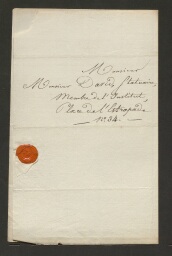 Monsieur
Monsieur David Statuaire
Membre de l'Institut
Place de l'Estrapade
N° 34.